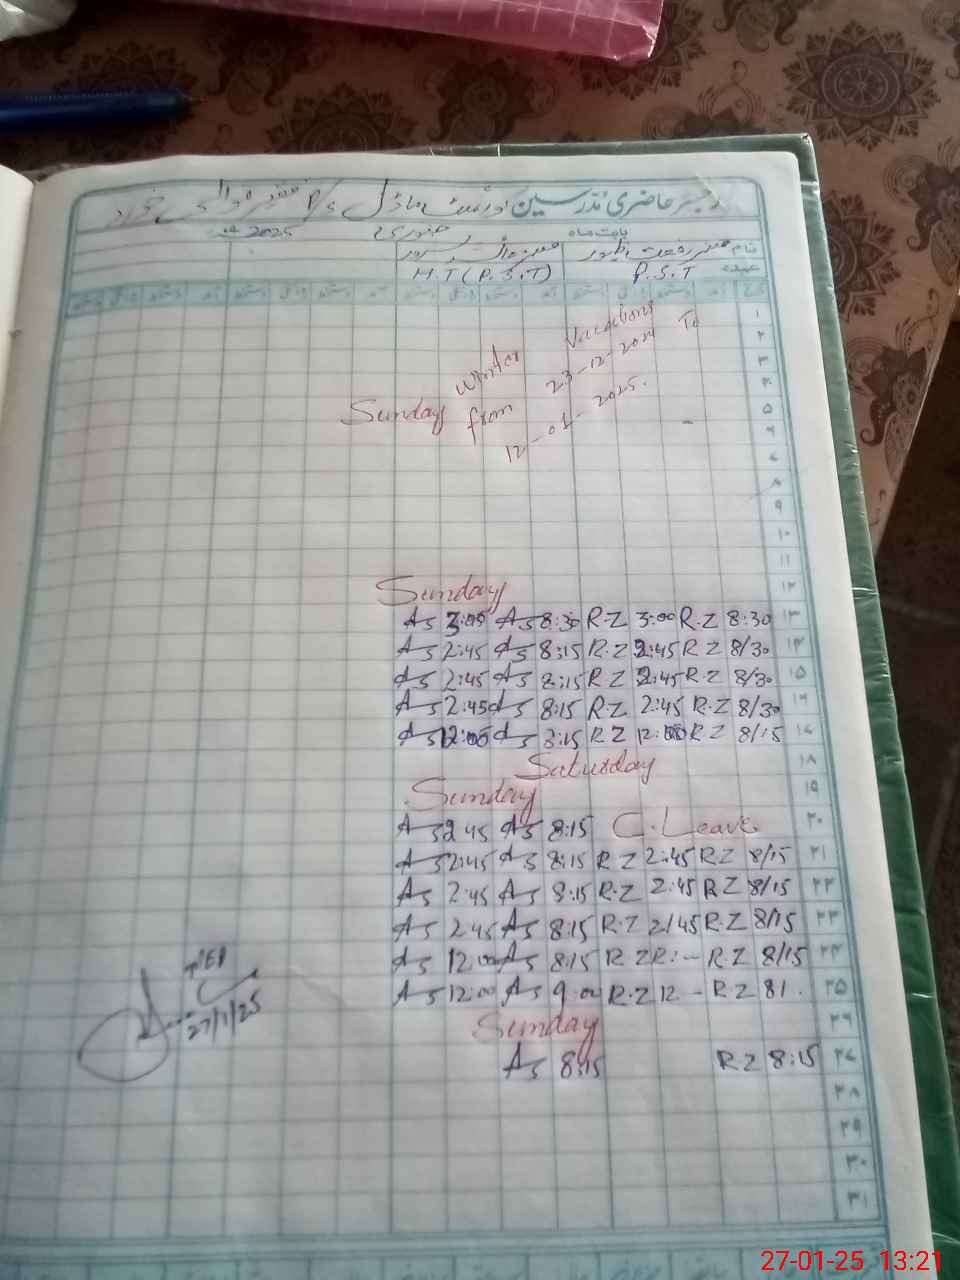 رجسٹر حاضری مدرسین گورنمنٹ ماڈل P/S
بابت ماہ جنوری 2025
نام
عہدہ P.S.T H.T (P.S.T)
۱
۲
۳
۴
Winter Vacations
from 23-12-2024 To
12-01-2025.
Sunday
۵
۶
۷
۸
۹
۱۰
۱۱
Sunday ۱۲
AS 3:05 AS 8:30 R-Z 3:00 R.Z 8:30 ۱۳
AS 2:45 AS 8:15 R.Z 2:45 R.Z 8/30 ۱۴
AS 2:45 AS 8:15 R.Z 2:45 R.Z 8/30 ۱۵
AS 2:45 AS 8:15 R.Z 2:45 R.Z 8/30 ۱۶
AS 12:00 AS 8:15 R.Z 12:00 R.Z 8/15 ۱۷
Saturday ۱۸
Sunday ۱۹
AS 2 45 AS 8:15 C.Leave ۲۰
AS 2:45 AS 8:15 R Z 2:45 R.Z 8/15 ۲۱
AS 2:45 AS 8:15 R.Z 2:45 R Z 8/15 ۲۲
AS 2 45 AS 8:15 R-Z 2/45 R.Z 8/15 ۲۳
AS 12:00 AS 8:15 R.Z R:- R.Z 8/15 ۲۴
AS 12:00 AS 9:00 R.Z 12 - R.Z 81. ۲۵
Sunday ۲۶
AS 8:15 R Z 8:15 ۲۷
27/1/25
۲۸
۲۹
۳۰
۳۱
27-01-25 13:21